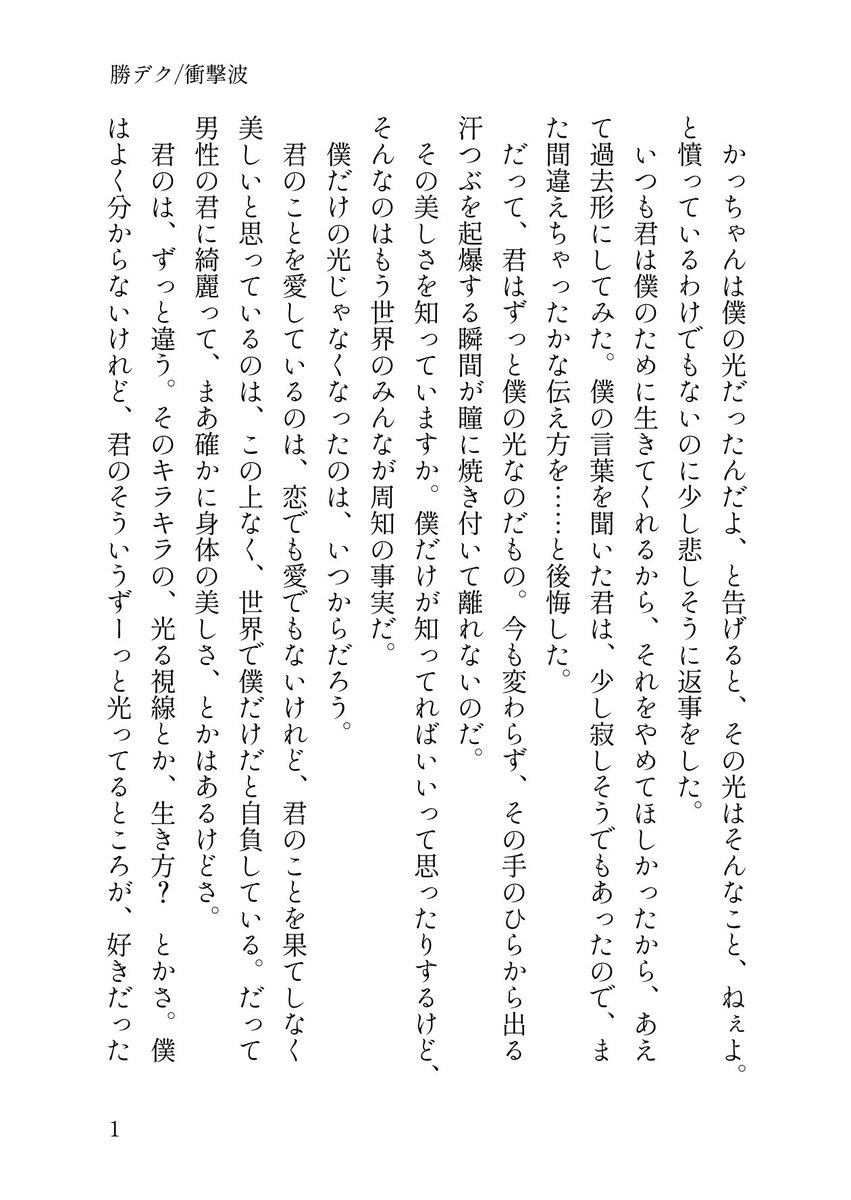 勝デク/衝撃波
　かっちゃんは僕の光だったんだよ、と告げると、その光はそんなこと、ねぇよ。
と憤っているわけでもないのに少し悲しそうに返事をした。
　いつも君は僕のために生きてくれるから、それをやめてほしかったから、あえ
て過去形にしてみた。僕の言葉を聞いた君は、少し寂しそうでもあったので、ま
た間違えちゃったかな伝え方を……と後悔した。
　だって、君はずっと僕の光なのだもの。今も変わらず、その手のひらから出る
汗つぶを起爆する瞬間が瞳に焼き付いて離れないのだ。
　その美しさを知っていますか。僕だけが知ってればいいって思ったりするけど、
そんなのはもう世界のみんなが周知の事実だ。
　僕だけの光じゃなくなったのは、いつからだろう。
　君のことを愛しているのは、恋でも愛でもないけれど、君のことを果てしなく
美しいと思っているのは、この上なく、世界で僕だけだと自負している。だって
男性の君に綺麗って、まあ確かに身体の美しさ、とかはあるけどさ。
　君のは、ずっと違う。そのキラキラの、光る視線とか、生き方？　とかさ。僕
はよく分からないけれど、君のそういうずーっと光ってるところが、好きだった
1